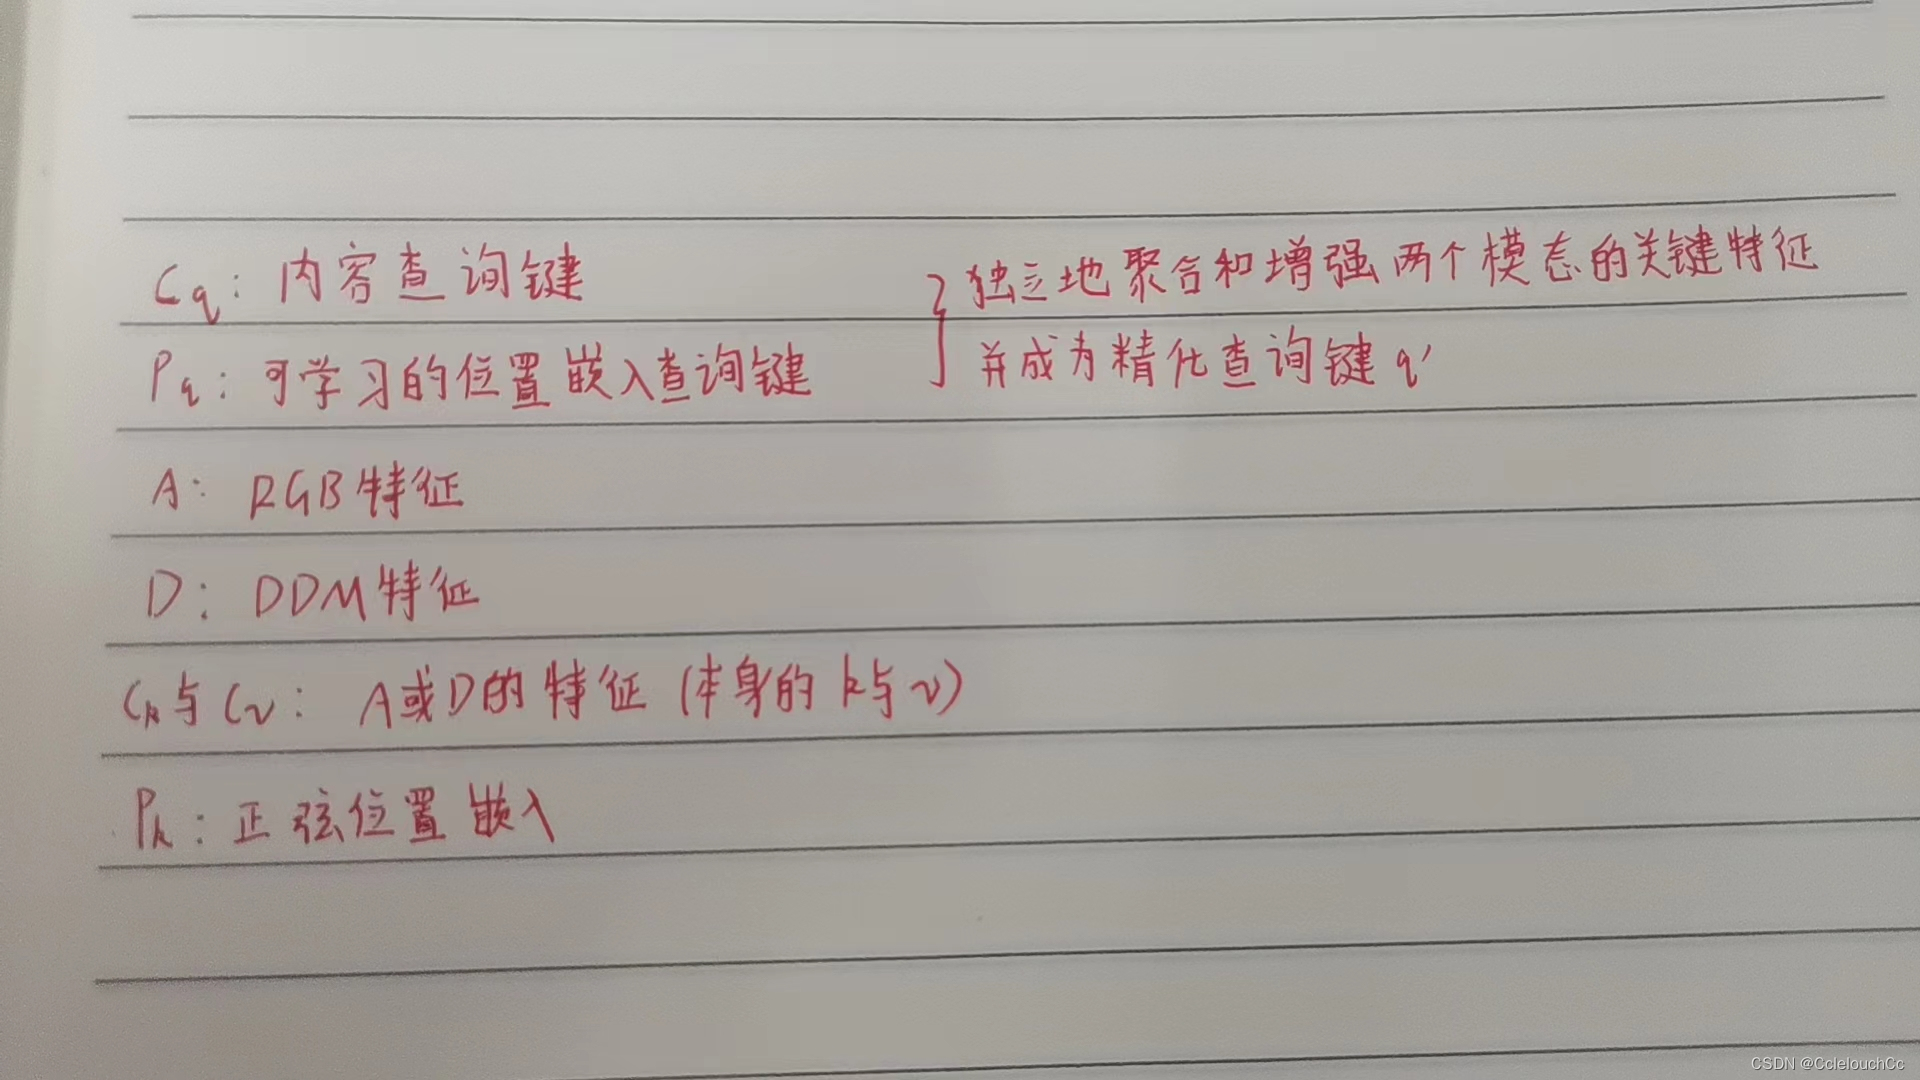 Cq：内容查询键
Pq：可学习的位置嵌入查询键
} 独立地聚合和增强两个模态的关键特征
并成为精化查询键 q′
A：RGB特征
D：DDM特征
Ck与Cv：A或D的特征（本身的k与v）
Pk：正弦位置嵌入
CSDN @CclelouchCc